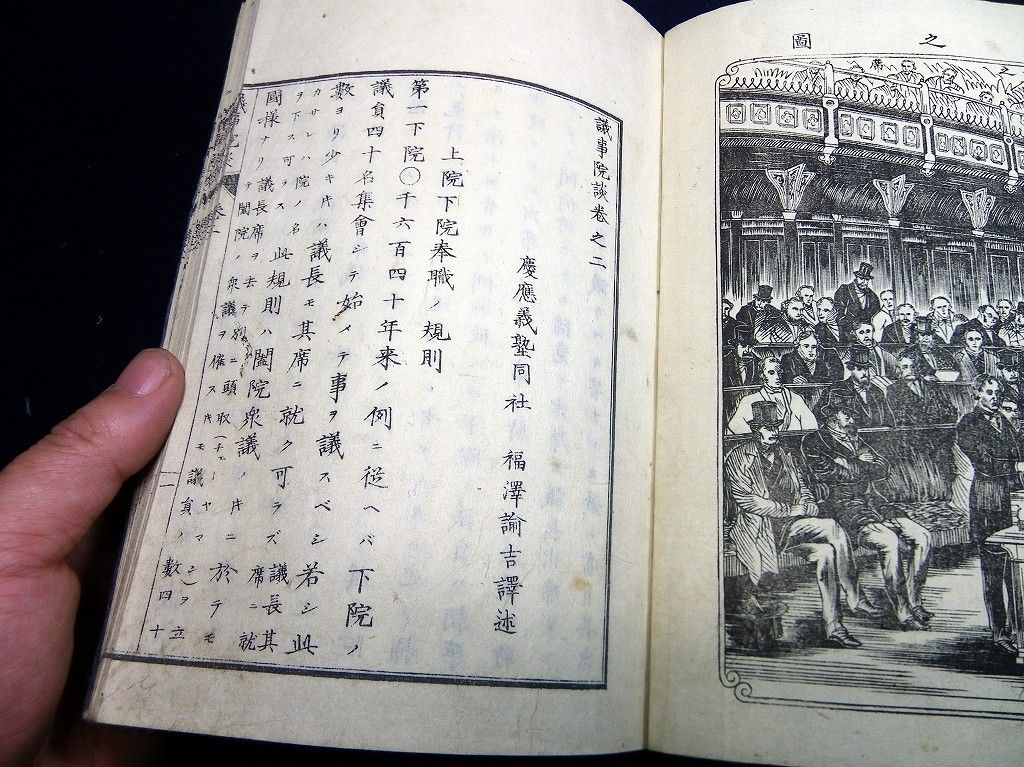 之圖
之席
議事院談卷之二
慶應義塾同社 福澤諭吉譯述
上院下院奉職ノ規則
第一下院〇千六百四十年來ノ例ニ從ヘバ下院ノ
議員四十名集會シテ始メテ事ヲ議スベシ若シ此
數ヨリ少キ𪜈ハ議長モ其席ニ就ク可ラズ議長其席ニ就
カサレハ院ノ名ヲ下ス可ラス此規則ハ闔院衆議ノ𪜈ニ於テモ
同樣ナリ議長席ヲ去テ別ニ頭取ヲ立テ闔院ノ衆議ヲ催スキモ議員ノ數四十
一